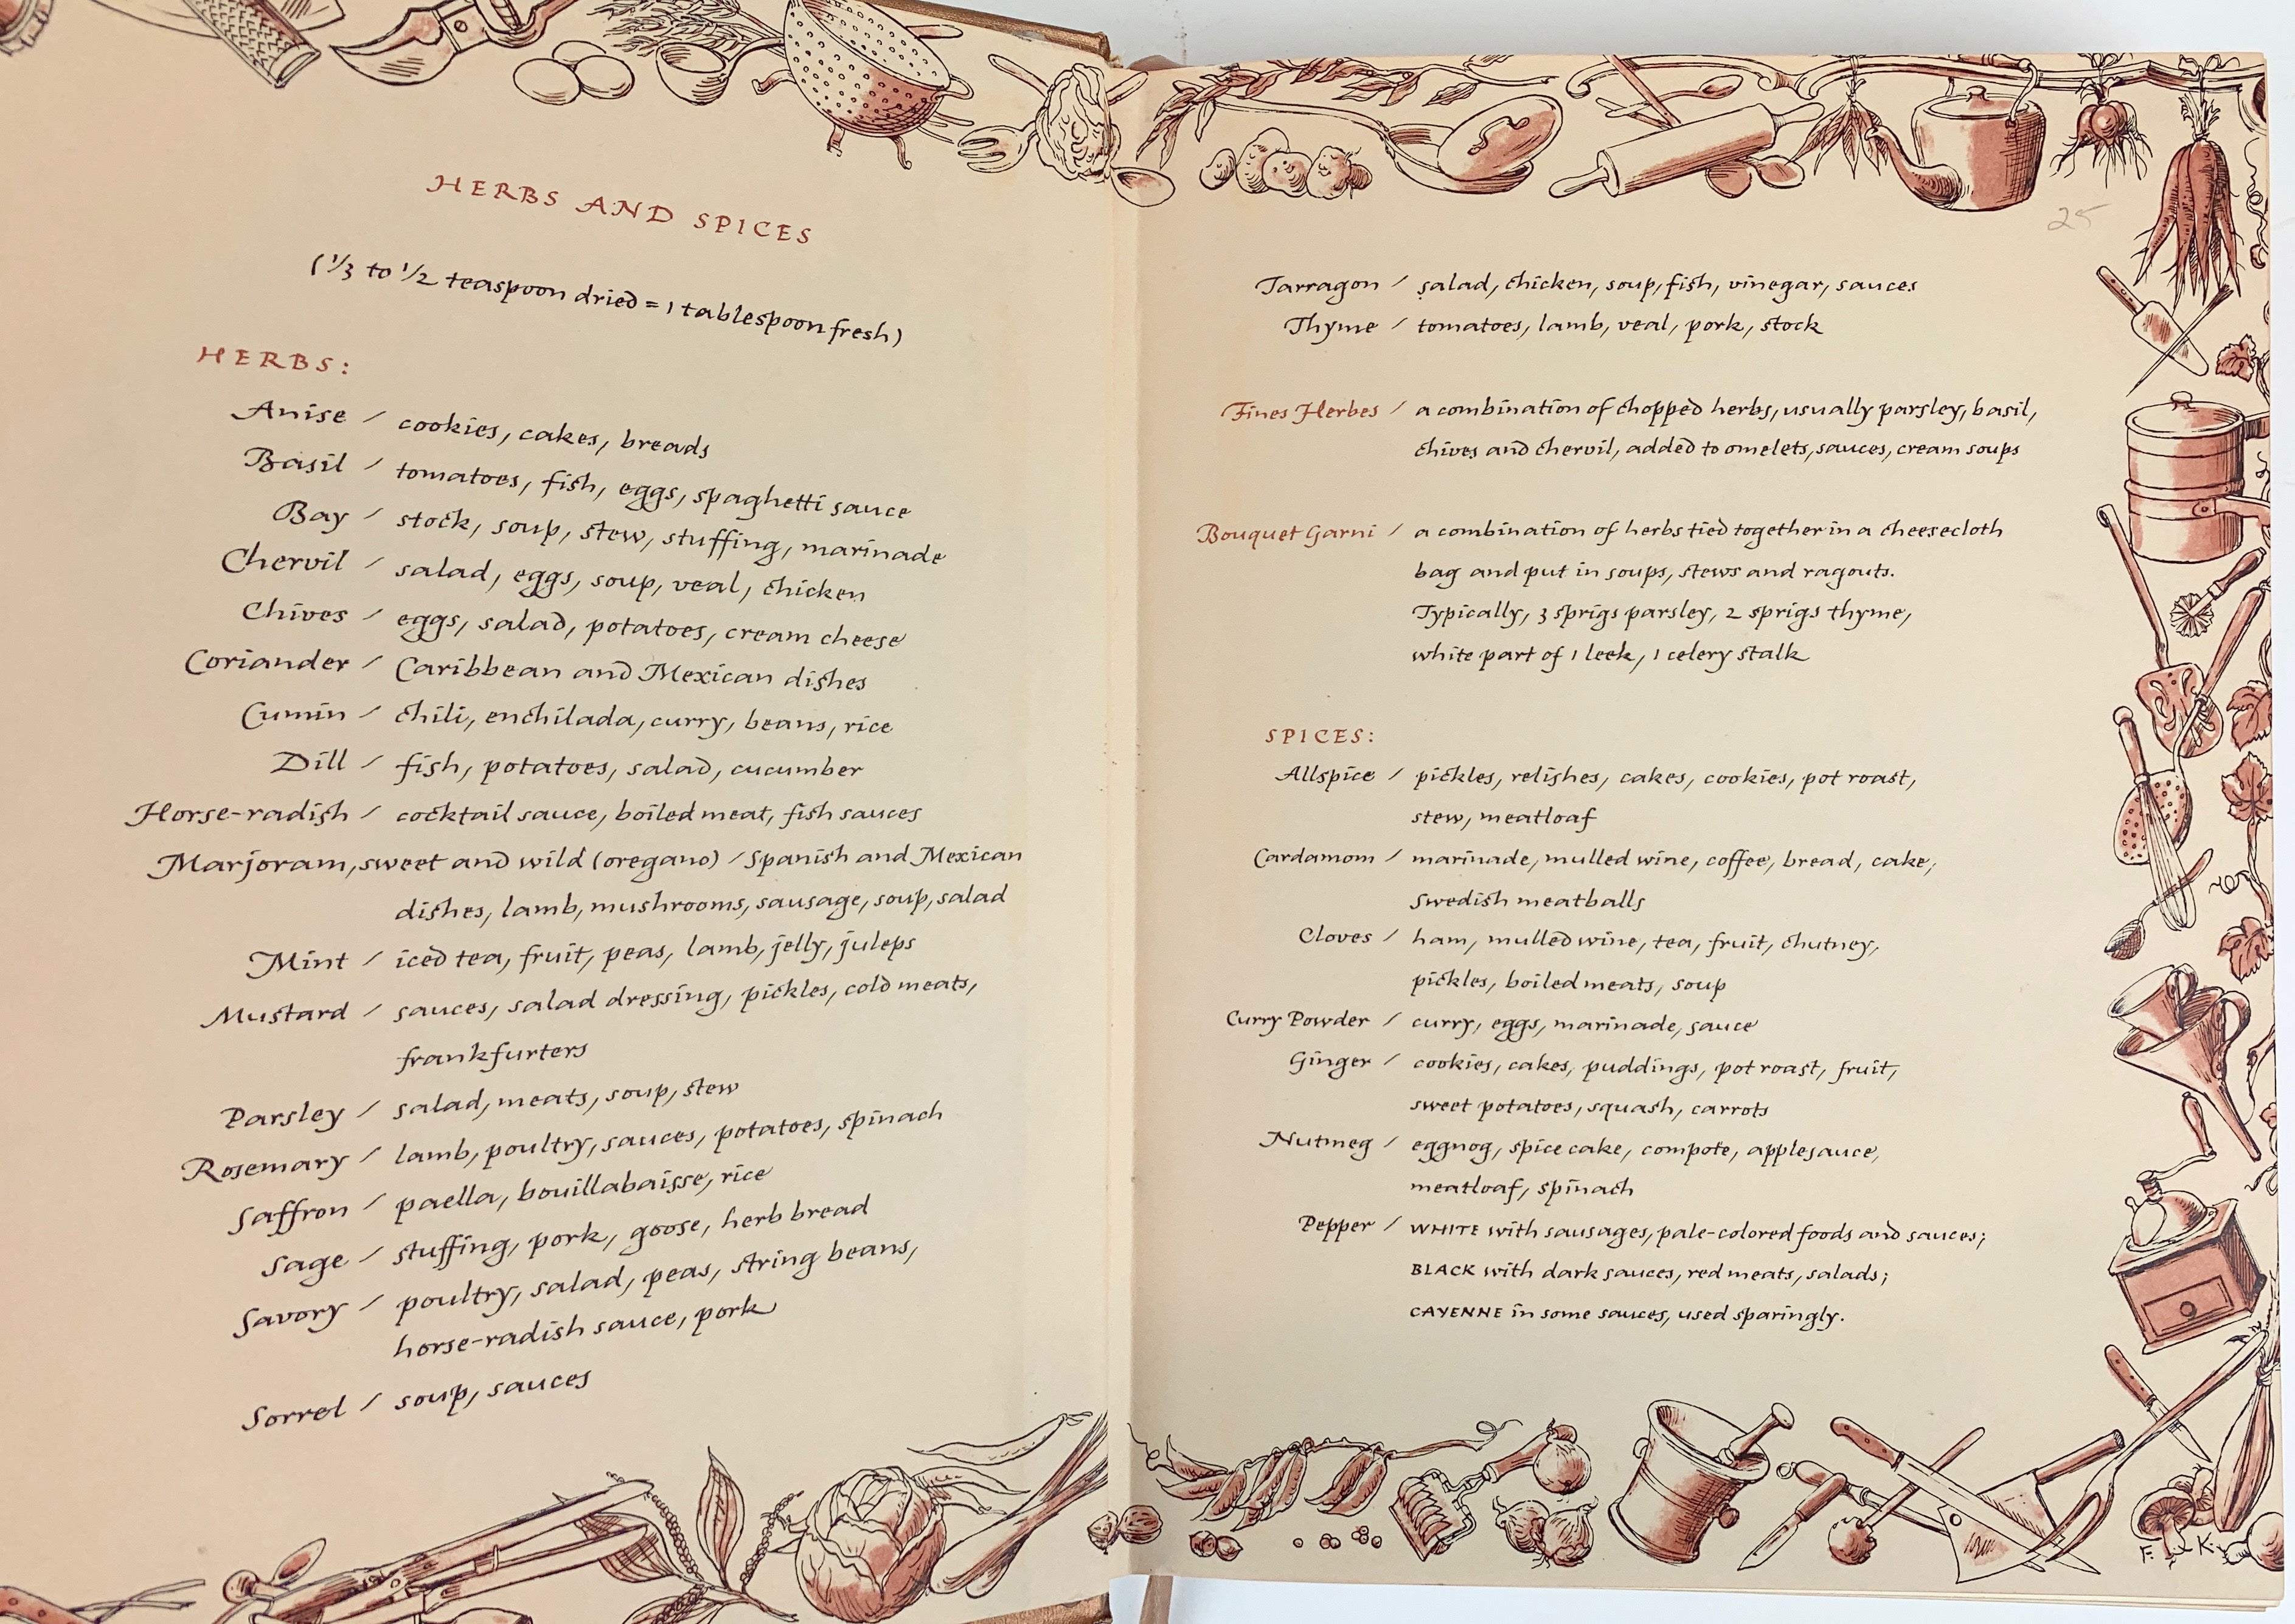 HERBS AND SPICES
(1/3 to 1/2 teaspoon dried = 1 tablespoon fresh)
HERBS:
Anise / cookies, cakes, breads
Basil / tomatoes, fish, eggs, spaghetti sauce
Bay / stock, soup, stew, stuffing, marinade
Chervil / salad, eggs, soup, veal, chicken
Chives / eggs, salad, potatoes, cream cheese
Coriander / Caribbean and Mexican dishes
Cumin / chili, enchilada, curry, beans, rice
Dill / fish, potatoes, salad, cucumber
Horse-radish / cocktail sauce, boiled meat, fish sauces
Marjoram, sweet and wild (oregano) / Spanish and Mexican
dishes, lamb, mushrooms, sausage, soup, salad
Mint / iced tea, fruit, peas, lamb, jelly, juleps
Mustard / sauces, salad dressing, pickles, cold meats,
frankfurters
Parsley / salad, meats, soup, stew
Rosemary / lamb, poultry, sauces, potatoes, spinach
Saffron / paella, bouillabaisse, rice
Sage / stuffing, pork, goose, herb bread
Savory / poultry, salad, peas, string beans,
horse-radish sauce, pork
Sorrel / soup, sauces
25
Tarragon / salad, chicken, soup, fish, vinegar, sauces
Thyme / tomatoes, lamb, veal, pork, stock
Fines Herbes / a combination of chopped herbs, usually parsley, basil,
chives and chervil, added to omelets, sauces, cream soups
Bouquet Garni / a combination of herbs tied together in a cheesecloth
bag and put in soups, stews and ragouts.
Typically, 3 sprigs parsley, 2 sprigs thyme,
white part of 1 leek, 1 celery stalk
SPICES:
Allspice / pickles, relishes, cakes, cookies, pot roast,
stew, meatloaf
Cardamom / marinade, mulled wine, coffee, bread, cake,
Swedish meatballs
Cloves / ham, mulled wine, tea, fruit, chutney,
pickles, boiled meats, soup
Curry Powder / curry, eggs, marinade, sauce
Ginger / cookies, cakes, puddings, pot roast, fruit,
sweet potatoes, squash, carrots
Nutmeg / eggnog, spice cake, compote, applesauce,
meatloaf, spinach
Pepper / WHITE with sausages, pale-colored foods and sauces;
BLACK with dark sauces, red meats, salads;
CAYENNE in some sauces, used sparingly.
F. K.